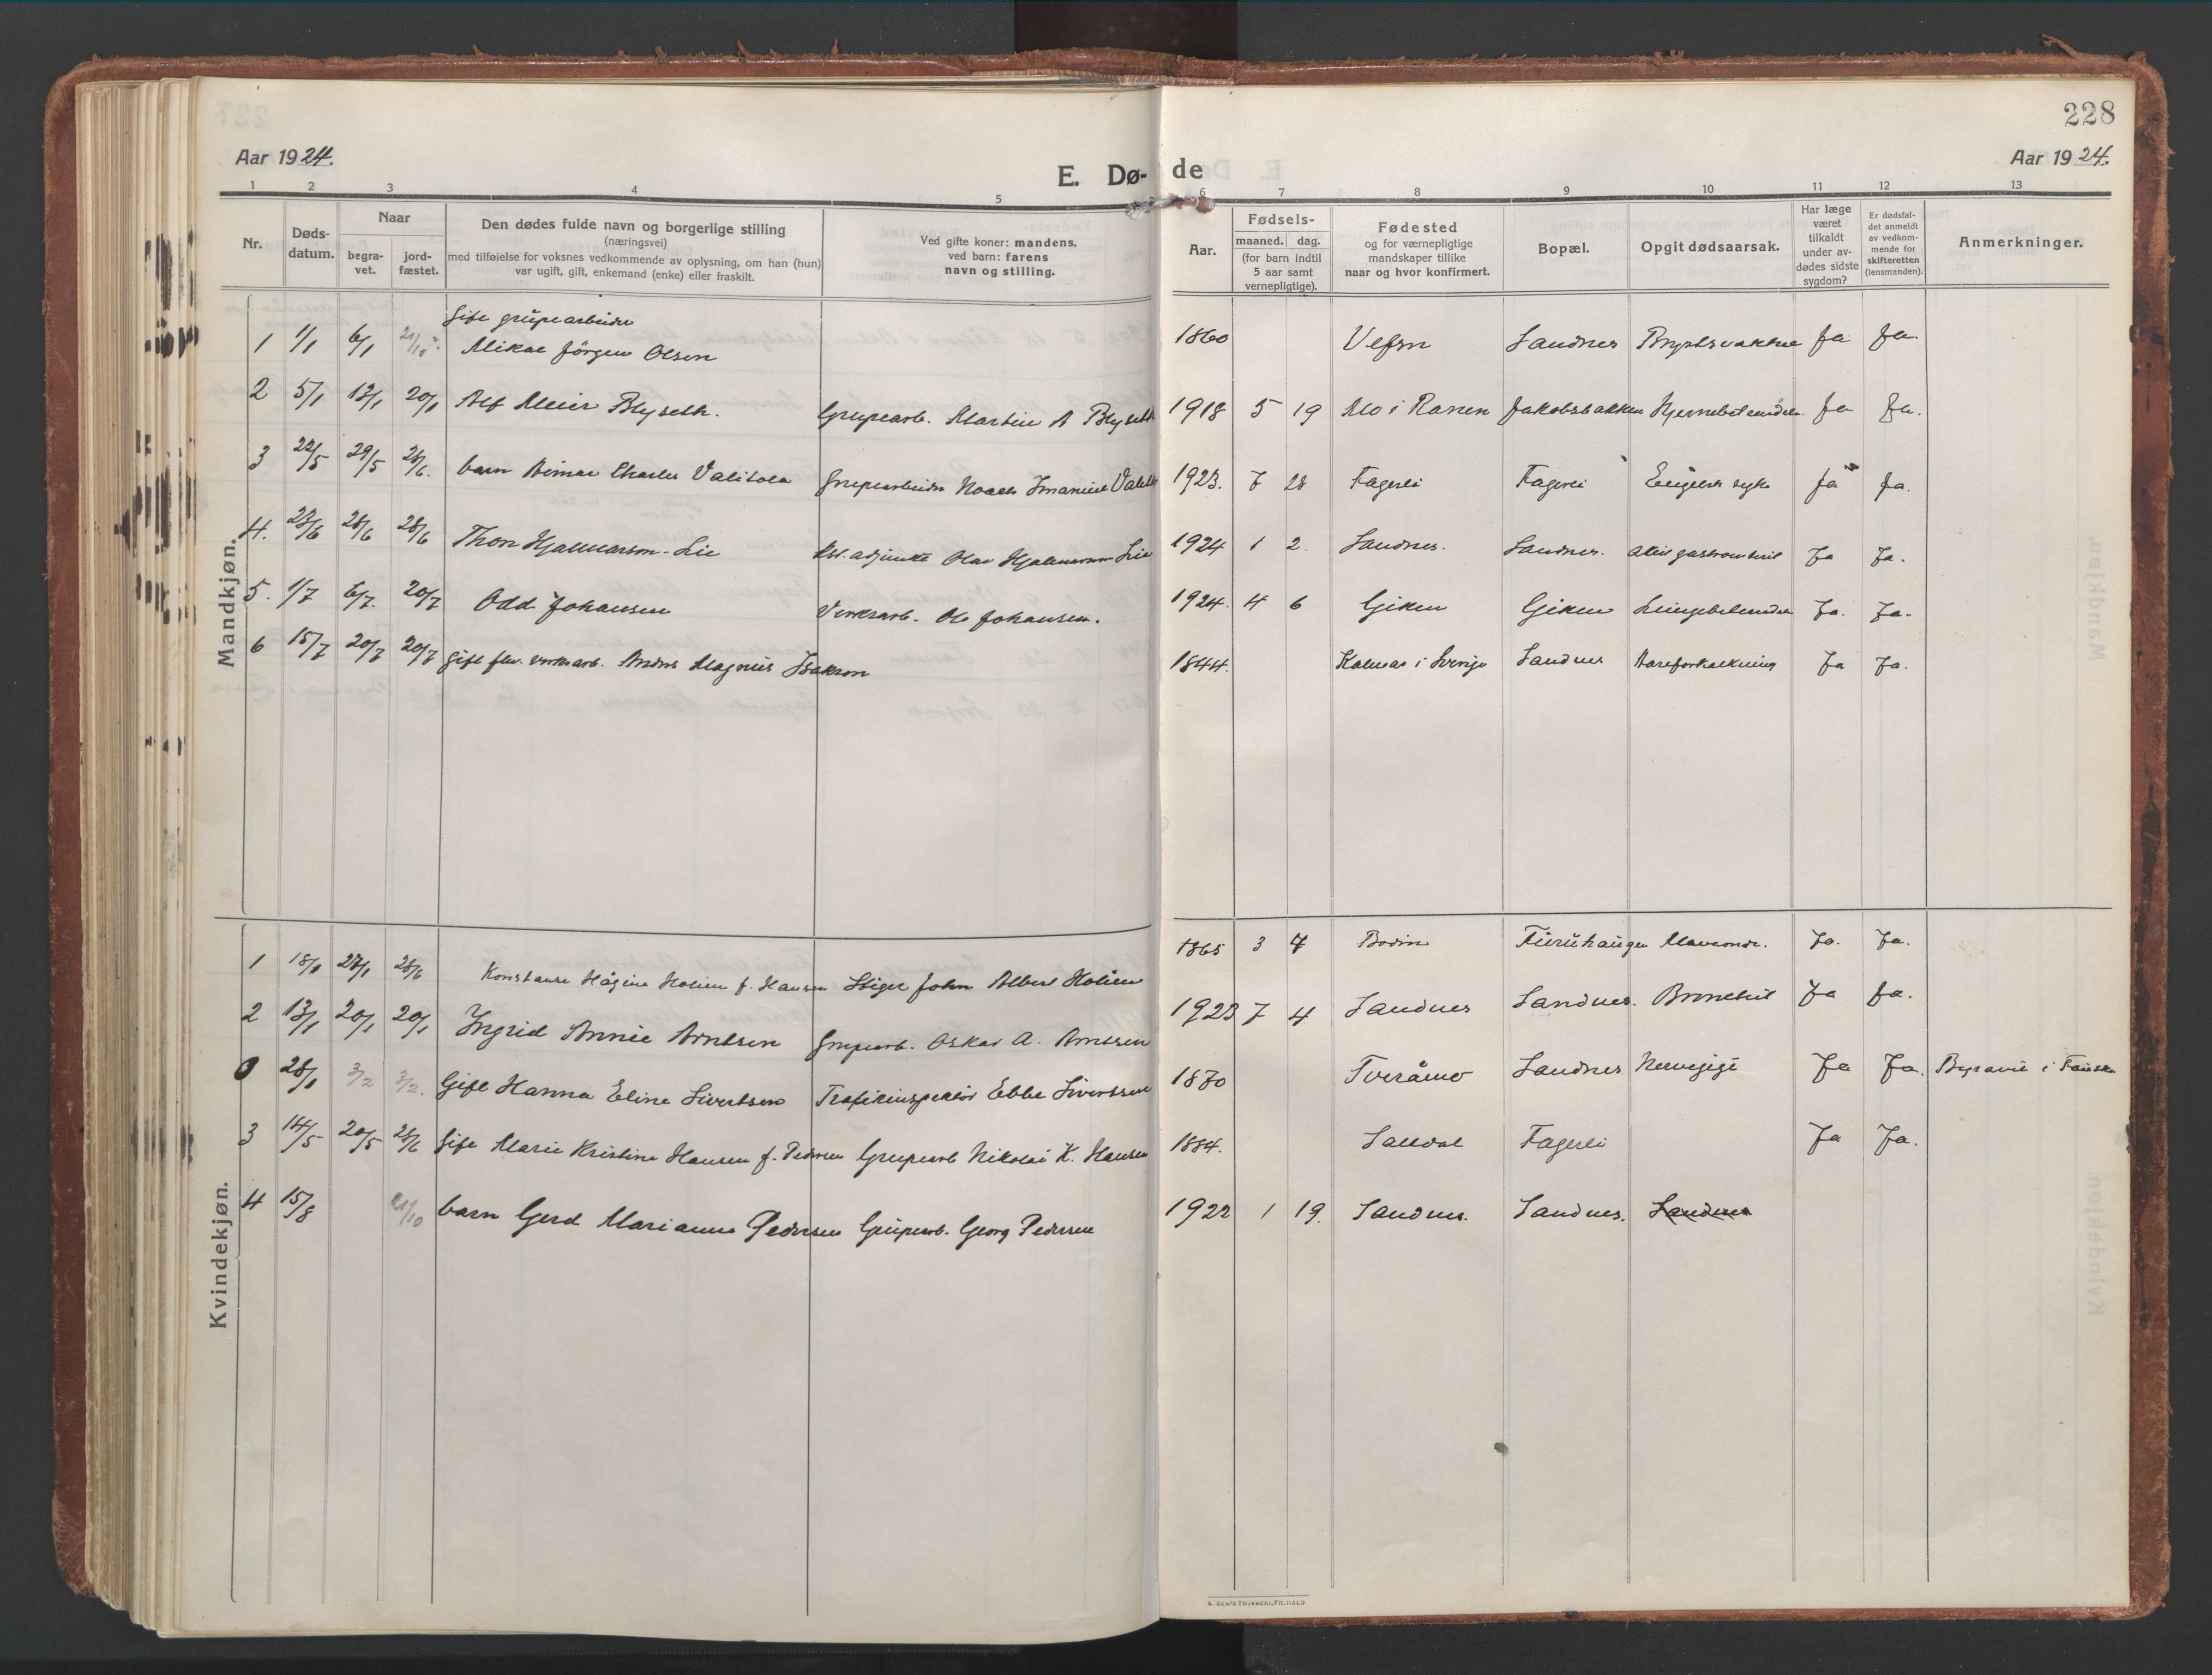 228
Aar 1924.
E. Døde
Aar 1924.
1 2 3 4 5 6 7 8 9 10 11 12 13
Nr.
Døds-
datum.
Naar
begra-
vet.
jord-
fæstet.
Den dødes fulde navn og borgerlige stilling
(næringsvei)
med tilføielse for voksnes vedkommende av oplysning, om han (hun)
var ugift, gift, enkemand (enke) eller fraskilt.
Ved gifte koner: mandens,
ved barn: farens
navn og stilling.
Aar.
Fødsels-
maaned. dag.
(for barn indtil
5 aar samt
vernepligtige).
Fødested
og for værnepligtige
mandskaper tillike
naar og hvor konfirmert.
Bopæl.
Opgit dødsaarsak.
Har læge
været
tilkaldt
under av-
dødes sidste
sygdom?
Er dødsfal-
det anmeldt
av vedkom-
mende for
skifteretten
(lensmanden).
Anmerkninger.
Mandkjøn.
Gift grupearbeider
1 1/1 6/1 Mikal Jörgen Olsen 1860 Vefsn Sandnes Ja Ja
2 5/1 13/1 20/1 Alf Meier Blyseth. Grupearb. Martin A Blyseth 1918 5 19 Mo i Ranen Jakobsbakken Hjernebetændelse Ja Ja.
3 22/5 29/5 28/6. barn Charles Valitola Grupearbeider Imanuel 1923. 7 28 Fagerli Fagerli Engelsk syke Ja Ja.
4. 23/6 28/6 28/6 Thor Hjalmarson-Lie adjunkt Olav Hjalmarson Lie 1924 1 2. Sandnes. Sandnes. Ja Ja.
5. 1/7 6/7. 20/7 Odd Johansen Verksarb. Ole Johansen. 1924. 4 6 Giken Giken Lungebetændelse Ja. Ja.
6 15/7 20/7 20/7 Gift fhv. verksarb. Anders Magnus Isakson 1844. Kalmar i Sverige Sandnes Aareforkalkning Ja Ja.
Kvindekjøn.
1 18/1 27/1 28/6 Konstanse Hågine Holien f. Hansen Stiger John Albert Holien 1865 3 7 Bodin Furuhaugen Ja. Ja.
2 13/1 20/1 20/1 Ingrid Annie Arntsen Grupearb. Oskar A. Arntsen 1923 7 4 Sandnes Sandnes. Bronchit Ja Ja.
0 28/1 3/2 3/2. Gift Hanna Eline Sivertsen Trafikinspektör Ebbe Sivertsen 1870 Tveråmo Sandnes Ja Ja. Begravet i Fauske
3 14/5 20/5 28/6 Gift Marie Kristine Hansen f. Pedersen Grupearb Nikolai K. Hansen 1884. Saltdal Fagerli Ja Ja.
4 15/8 21/10 barn Gerd Marianne Pedersen Grupearb. Georg Pedersen 1922 1 19. Sandnes. Sandnes. Sandnes